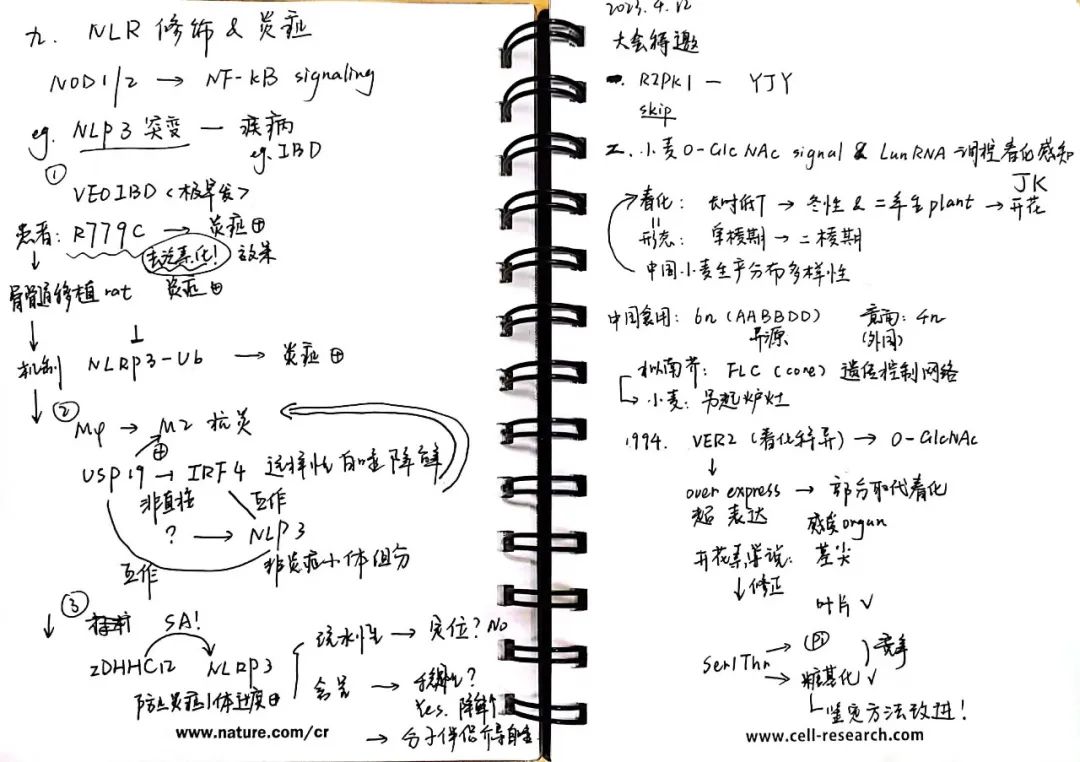 九. NLR 修饰 & 炎症
NOD1/2 → NF-kB signaling
eg. NLP3 突变 — 疾病
eg. IBD
①
VEOIBD <极早发>
患者: R779C → 炎症⊕
去泛素化! 效果
↓
骨髓移植 rat 炎症⊕
↓
机制 NLRP3-Ub → 炎症⊕
↓ ②
Mφ → M2 抗炎
⊕
USP19 → IRF4 选择性自噬降解
非直接 互作
? → NLP3
互作 非炎症小体组分
↓ ③
SA!
ZDHHC12 NLRP3
疏水性 → 定位? No
防止炎症小体过度⊕
含量 →
Yes. 降解↑
→ 分子伴侣介导自噬
www.nature.com/cr
2023.4.12
大会特邀
RIPK1 — YJY
skip
二. 小麦 O-GlcNAc signal & LunRNA 调控春化感知
JK
春化: 长时低T → 冬性 & 二年生 plant → 开花
形态: 单棱期 → 二棱期
中国小麦生产分布多样性
中国食用: 6n (AABBDD) 意面: 4n
异源 (外国)
拟南芥: FLC (core) 遗传控制网络
→ 小麦: 另起炉灶
1994. VER2 (春化特异) → O-GlcNAc
↓
over express → 部分取代春化
超 表达 感受 organ
开花素学说: 茎尖
↓修正
叶片 √
Ser/Thr → Pi 竞争
→ 糖基化 √
鉴定方法改进!
www.cell-research.com